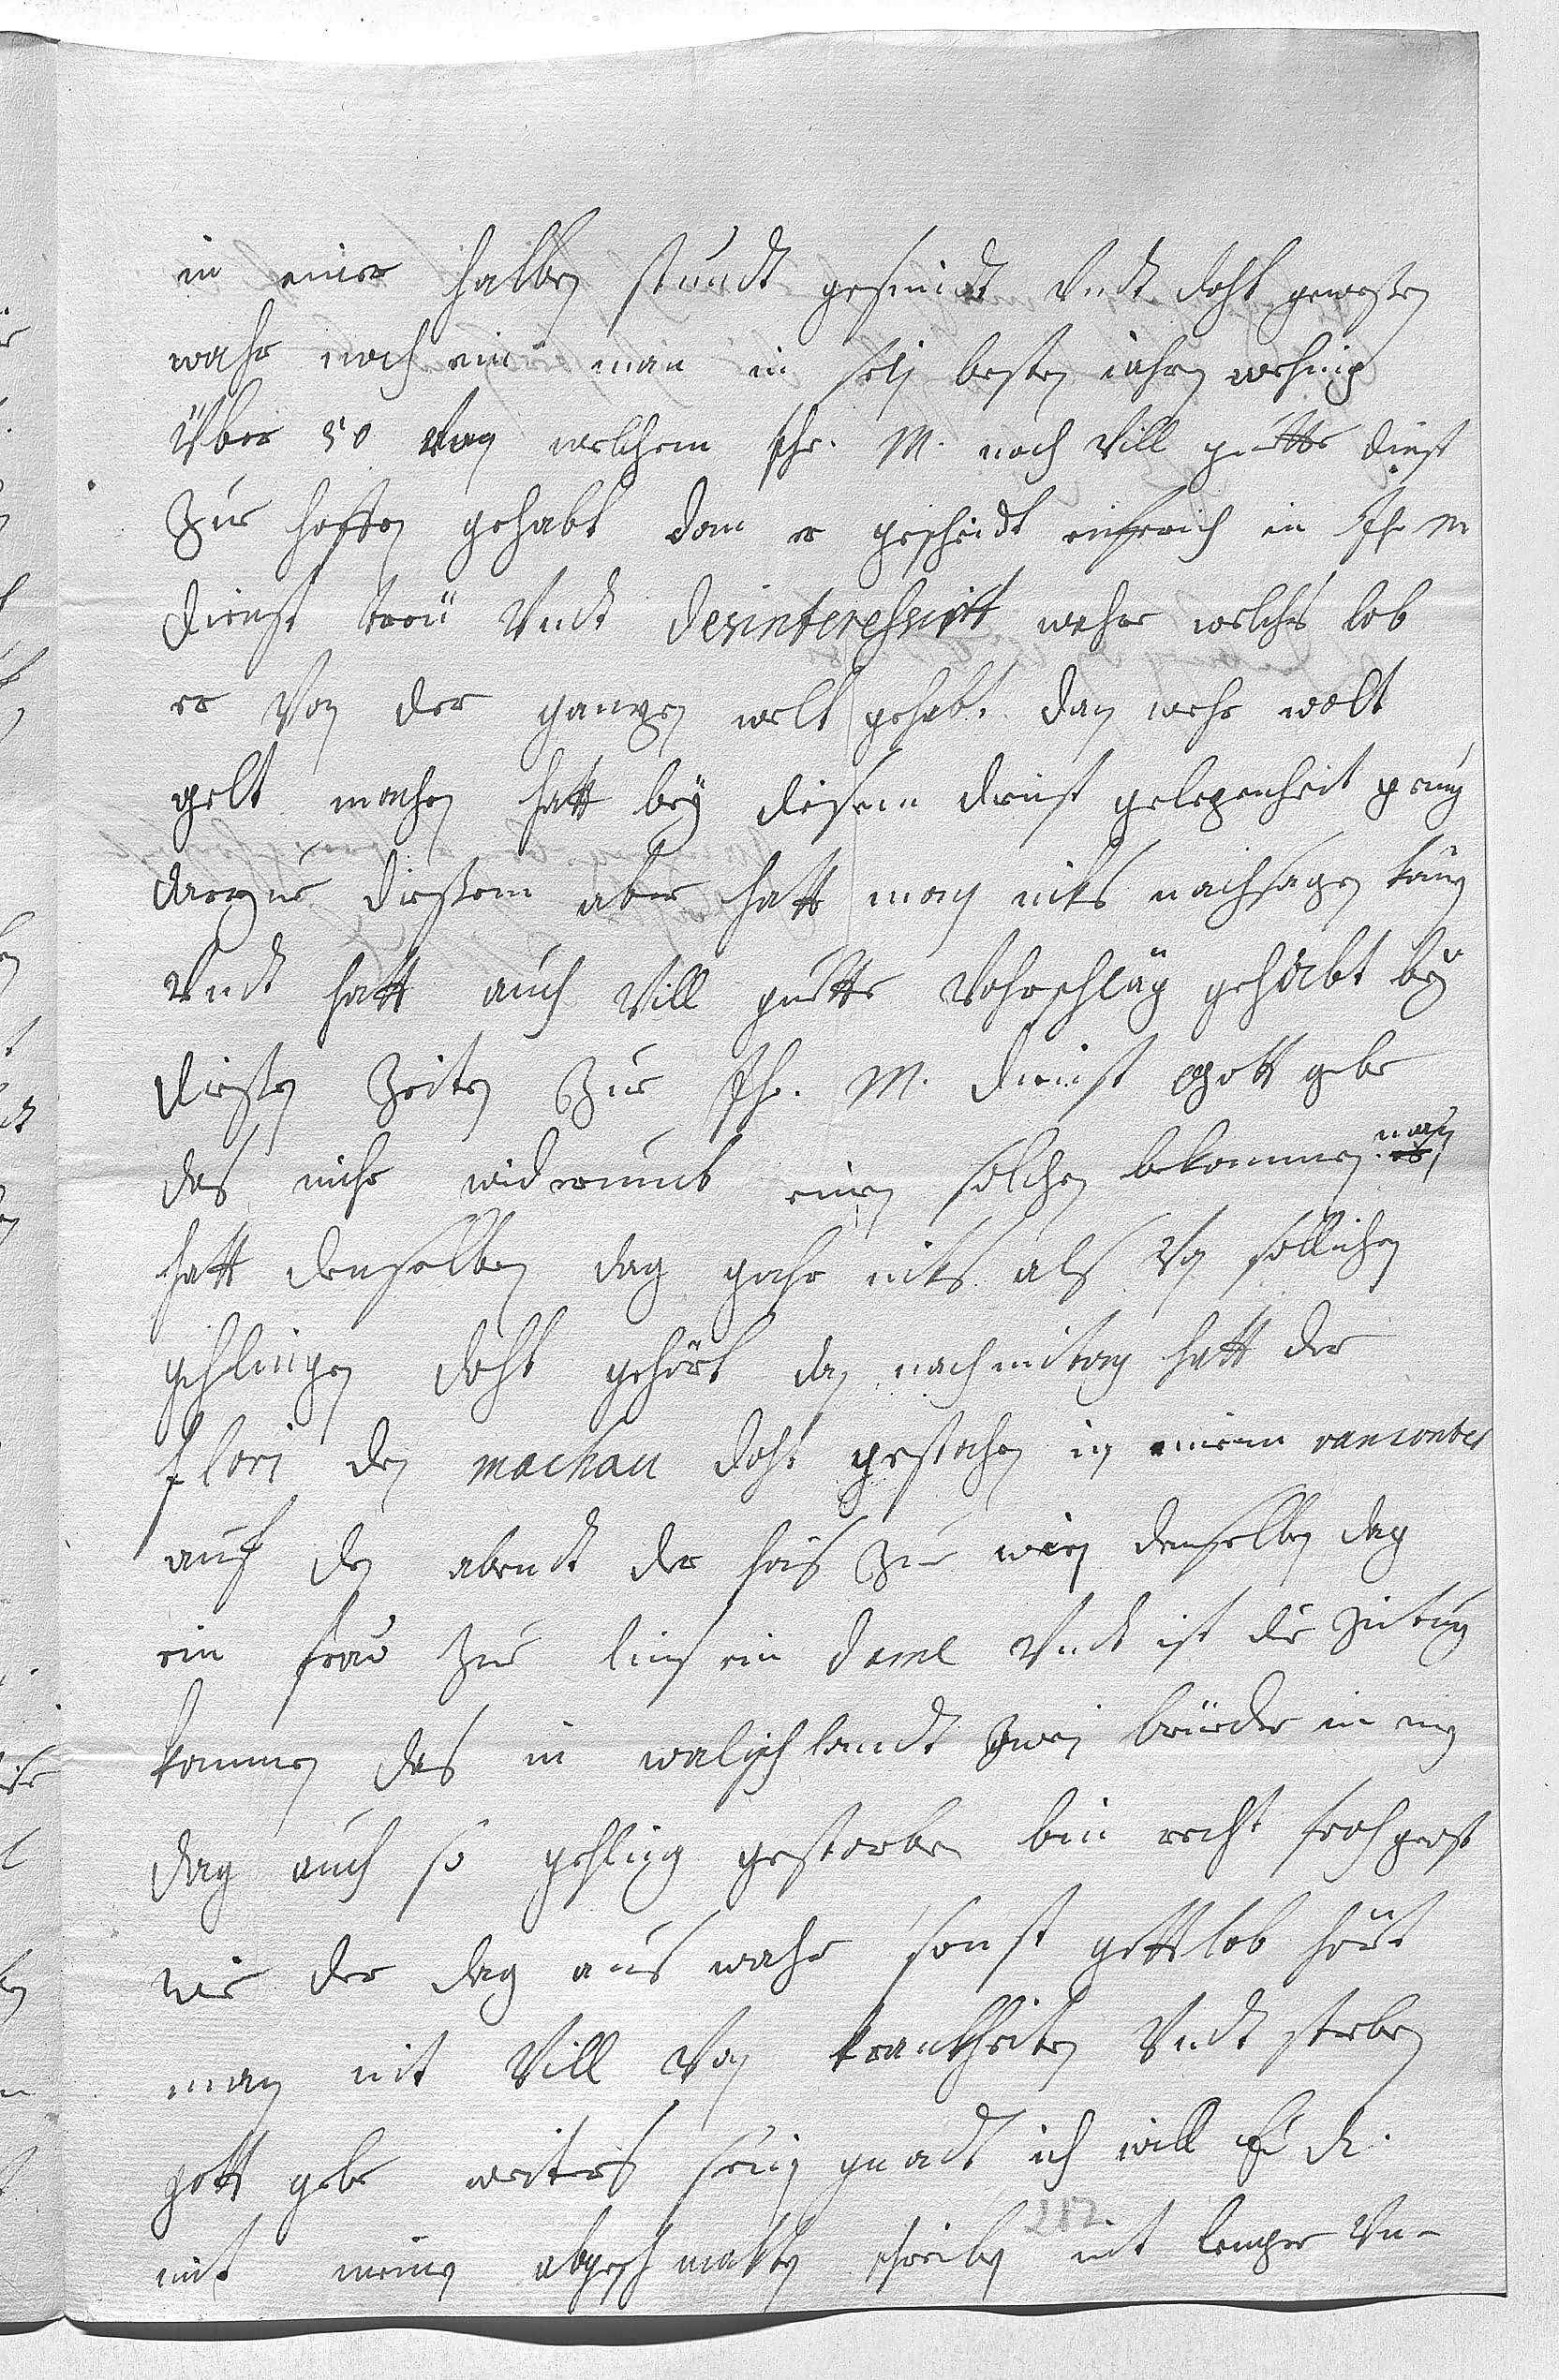 in einer halben stundt gesundt vndt doht gewesen
wahr noch ein man in sein besten iahren wehnig
über 50 von welchem Ihr. M. noch vill gutte dinst
zur hoffen gehabt dan er gescheidt eifreich in Ihr M
dienst treü vndt desinteressirtt wahr welches lob
er von der ganzen welt gehabt dan wehr wolt
gelt machen hatt bey diesem dinst gelegenheit genug
darzue diesem aber hatt man niks nachsagen könen
vndt hatt auch vill gutte vohrschläg gehabt bey
diesen zeiten zur Ihr. M. dienst gott gebe
das mihr widerumb einen solchen bekommen man
hatt denselben dag gahr niks als von sollichen
gehlingen doht gehört den nachmitag hatt der
flori den machau doht gestochen in einem rancontre
auf den abendt der zu wien denselben dag
ein frau zur lins ein dame vndt ist die zeitung
kommen das in walischlandt zwei brüeder in ein
dag auch so gehling gestorben bin recht froh gewest
wie der dag aus wahr sonst gottlob hört
man nit vill von krankheiten vndt sterben
gott gebe weiters sein gnadt ich will E. L.
mit meinen abgeschmakten schreiben nit lenger vn-
212